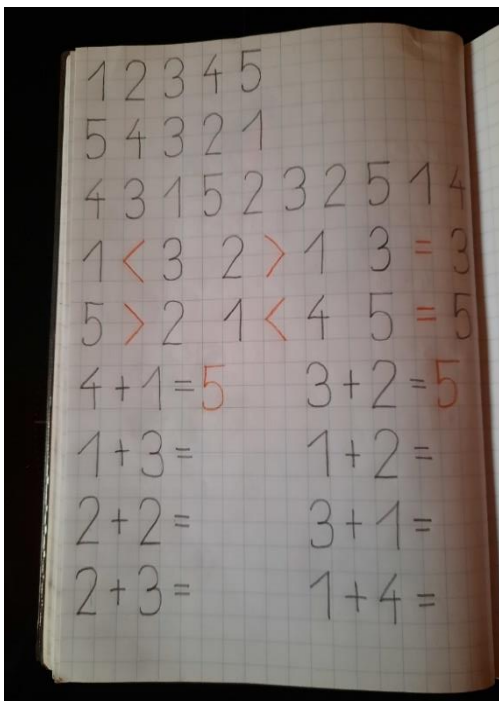 1 2 3 4 5
5 4 3 2 1
4 3 1 5 2 3 2 5 1 4
1 < 3 2 > 1 3 = 3
5 > 2 1 < 4 5 = 5
4+1=5 3+2=5
1+3= 1+2=
2+2= 3+1=
2+3= 1+4=